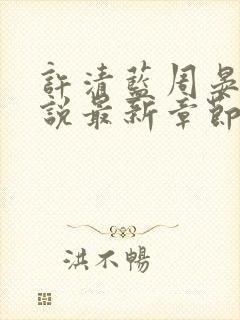 許清藍周晏
說最新章節
洪不暢